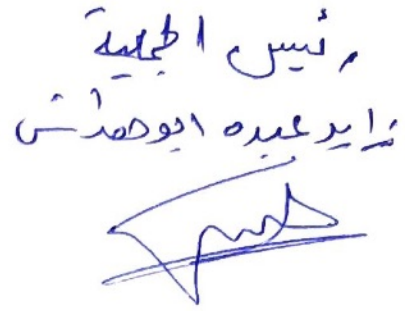 رئيس الجمعية
زايد عبده ابو هداش